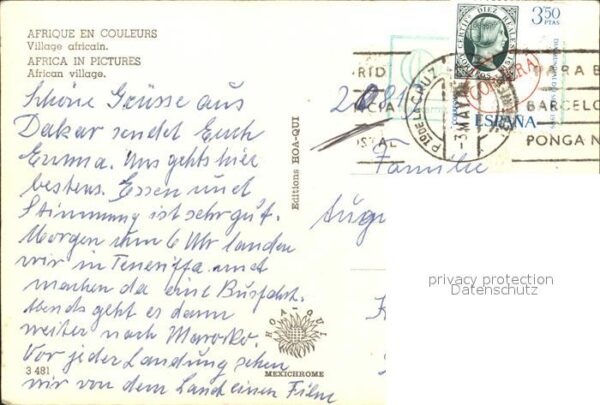 AFRIQUE EN COULEURS
Village africain.
AFRICA IN PICTURES
African village.
Schöne Grüsse aus
Dakar sendet Euch
Emma. Uns gehts hier
bestens. Essen und
Stimmung ist sehr gut.
Morgen um 6 Uhr landen
wir in Teneriffa und
machen da eine Busfahrt.
Abends geht es dann
weiter nach Marokko.
Vor jeder Landung sehen
wir von dem Land einen Film
3 481
Editions HOA-QUI
HOA-QUI
MEXICHROME
CERTIFDO DIEZ REALES
CORREOS
3,50
PTAS
ESPAÑA
PTO DE LA CRUZ
PARA
BARCELO
PONGA
Familie
privacy protection
Datenschutz